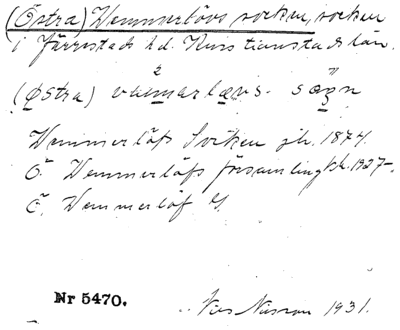 (Östra) Vemmerlövs socken, socken
i Järrestads hd. Kristianstads län.
(Østra) væmarlævs. sægn
Vemmerlöfs Socken jb. 1874.
Ö. Vemmerlöfs församling kb. 1927-.
Ö. Vemmerlöf
Nr 5470.
Nilsson 1931.